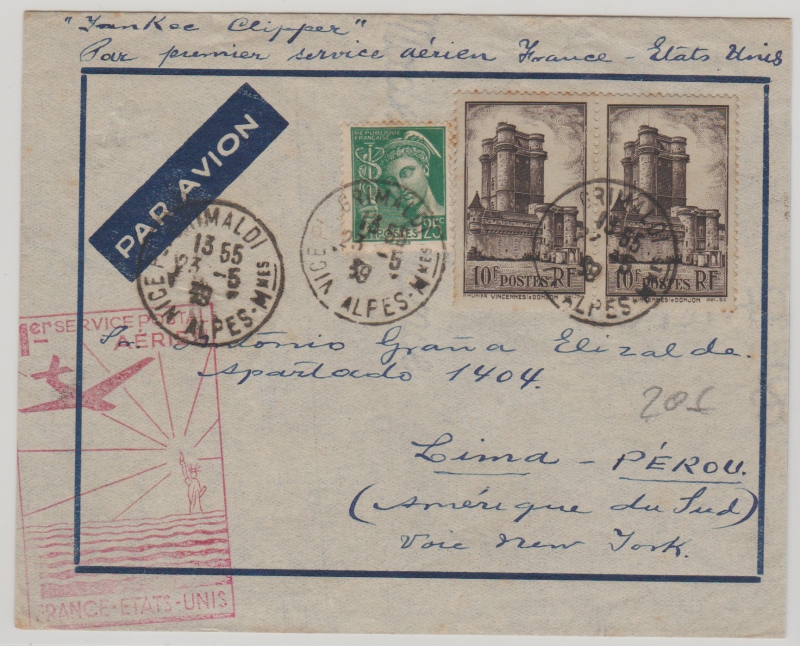 "Yankee Clipper"
Par premier service aérien France - Etats Unis
PAR AVION
REPUBLIQUE
FRANÇAISE
25c
POSTES
10F POSTES RF
VINCENNES LE DONJON
10F POSTES RF
VINCENNES LE DONJON
NICE PL. GRIMALDI
13 55
23 -5
39
ALPES-Mmes
NICE PL. GRIMALDI
13 55
23 -5
39
ALPES-Mmes
GRIMALDI
13 55
39
ALPES-M
1er SERVICE POSTAL
AÉRIEN
FRANCE-ETATS-UNIS
Sr. Antonio Graña Elizalde.
Apartado 1404.
205
Lima - PÉROU.
(Amérique du Sud)
Voie New York.